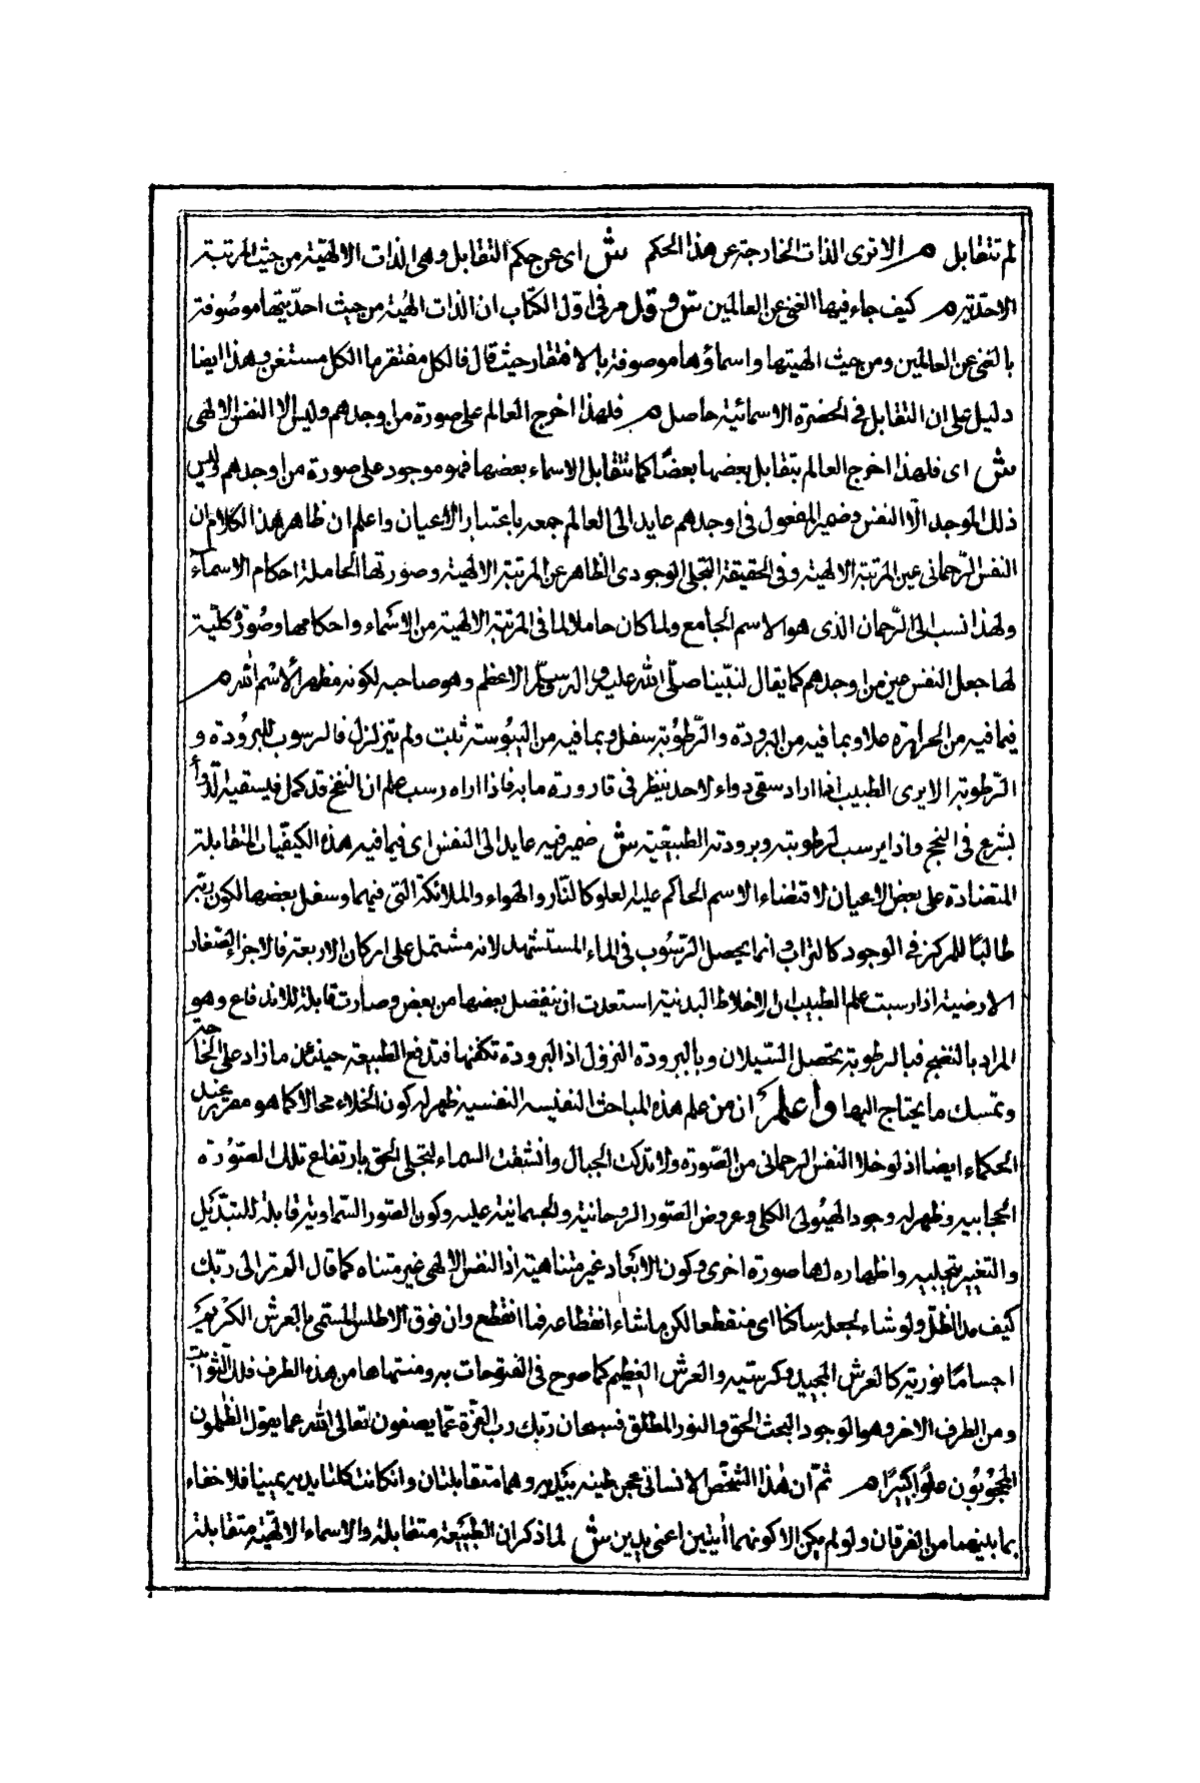 لم تتقابل م الا ترى الذات الخارجة عن هذا الحكم ش اى عن حكم التقابل وهى الذات الالهية من حيث المرتبة
الاحدية م كيف جاء فيها الغنى عن العالمين ش و قد مر فى اول الكتاب ان الذات الهية من حيث احديتها موصوفة
بالغنى عن العالمين ومن حيث الهيتها واسماؤها موصوفة بالافتقار حيث قال فالكل مفتقر ما الكل مستغن وهذا ايضا
دليل على ان التقابل فى الحضرة الاسمائية حاصل م فلهذا اخرج العالم على صورة من اوجدهم وليس الا النفس الالهى
ش اى فلهذا اخرج العالم يتقابل بعضها بعضا كما تتقابل الاسماء بعضها فهو موجود على صورة من اوجدهم وليس
ذلك الموجد الا النفس وضمير المفعول فى اوجدهم عايد الى العالم جمعه باعتبار الاعيان واعلم ان ظاهر هذا الكلام ان
النفس الرحمانى عين المرتبة الالهية وفى الحقيقة التجلى الوجودى الظاهر عن المرتبة الالهية وصورتها الحاملة احكام الاسماء
ولهذا نسب الى الرحمان الذى هو الاسم الجامع ولما كان حاملا لما فى المرتبة الالهية من الاسماء واحكامها وصورة كلية
لها جعل النفس عين من اوجدهم كما يقال لنبينا صلى الله عليه و اله وسلم الاعظم وهو صاحبه لكونه مظهر الاسم الله م
فبما فيه من الحرارة علا وبما فيه من البرودة والرطوبة سفل وبما فيه من اليبوسة ثبت ولم يتزلزل فالرسوب للبرودة و
الرطوبة الا يرى الطبيب اذا اراد سقى دواء لاحد ينظر فى قارورة مابه فاذا اراه رسب علم ان النضج قد كمل فيسقيه الدواء
ليشرع فى النجح واذا يرسب لرطوبته وبرودته الطبيعية ش ضمير فيه عايد الى النفس اى فبما فيه هذه الكيفيات المتقابلة
المتضادة على بعض الاعيان لاقتضاء الاسم الحاكم عليه لعلو كالنار والهواء والملائكة التى فيهما وسفل بعضها لكون
طالبا للمركز فى الوجود كالتراب وانما يحصل الرسوب فى الماء المستشهد لانه مشتمل على اركان الاربعة فالاجزاء الصغار
الارضية اذا رسبت علم الطبيب ان الاخلاط البدنية استعدت ان ينفصل بعضها من بعض وصارت قابلة للاندفاع وهو
المراد بالنضج فبالرطوبة يحصل السيلان وبالبرودة النزول اذ البرودة تكفنها فتدفع الطبيعة حينئذ ما زاد على الحاجة
وتمسك ما يحتاج اليها واعلم ان من علم هذه المباحث النفيسه النفسيه ظهر له كون الخلاء محالا كما هو مقرر عند
الحكماء ايضا اذ لو خلا النفس الرحمانى من الصورة ولا تدكت الجبال وانشقت السماء لتجلى الحق بارتفاع تلك الصورة
الحجابيه وظهر له وجود الهيولى الكلى وعروض الصور الروحانية والجسمانية عليه وكون الصور السماوية قابلة للتبديل
والتغيير بتجلييه واظهاره لها صورة اخرى وكون الابعاد غير متناهية اذ النفس الالهى غير متناه كما قال الم تر الى ربك
كيف مد الظل ولو شاء لجعله ساكنا اى منقطعا لكن ما شاء انقطاعه فما انقطع وان فوق الاطلس المسمى بالعرش الكريم
اجساما نورية كالعرش المجيد وكرسيه والعرش العظيم كما صرح فى الفتوحات به ومنتهاها من هذه الطرف فلك الثوابت
ومن الطرف الاخر وهو الوجود البحث الحق والنور المطلق فسبحان ربك رب العزة عما يصفون تعالى الله عما يقول الظالمون
المحجوبون علوا كبيرا م ثم ان هذا الشخص الانسانى عجن طينه بيديه وهما متقابلتان وان كانت كلتا يديه يمينا فلا خفاء
بما بينهما من الفرقان ولو لم يكن الا كونهما اثنين اعنى يدين ش لما ذكر ان الطبيعة متقابلة والاسماء الالهية متقابلة